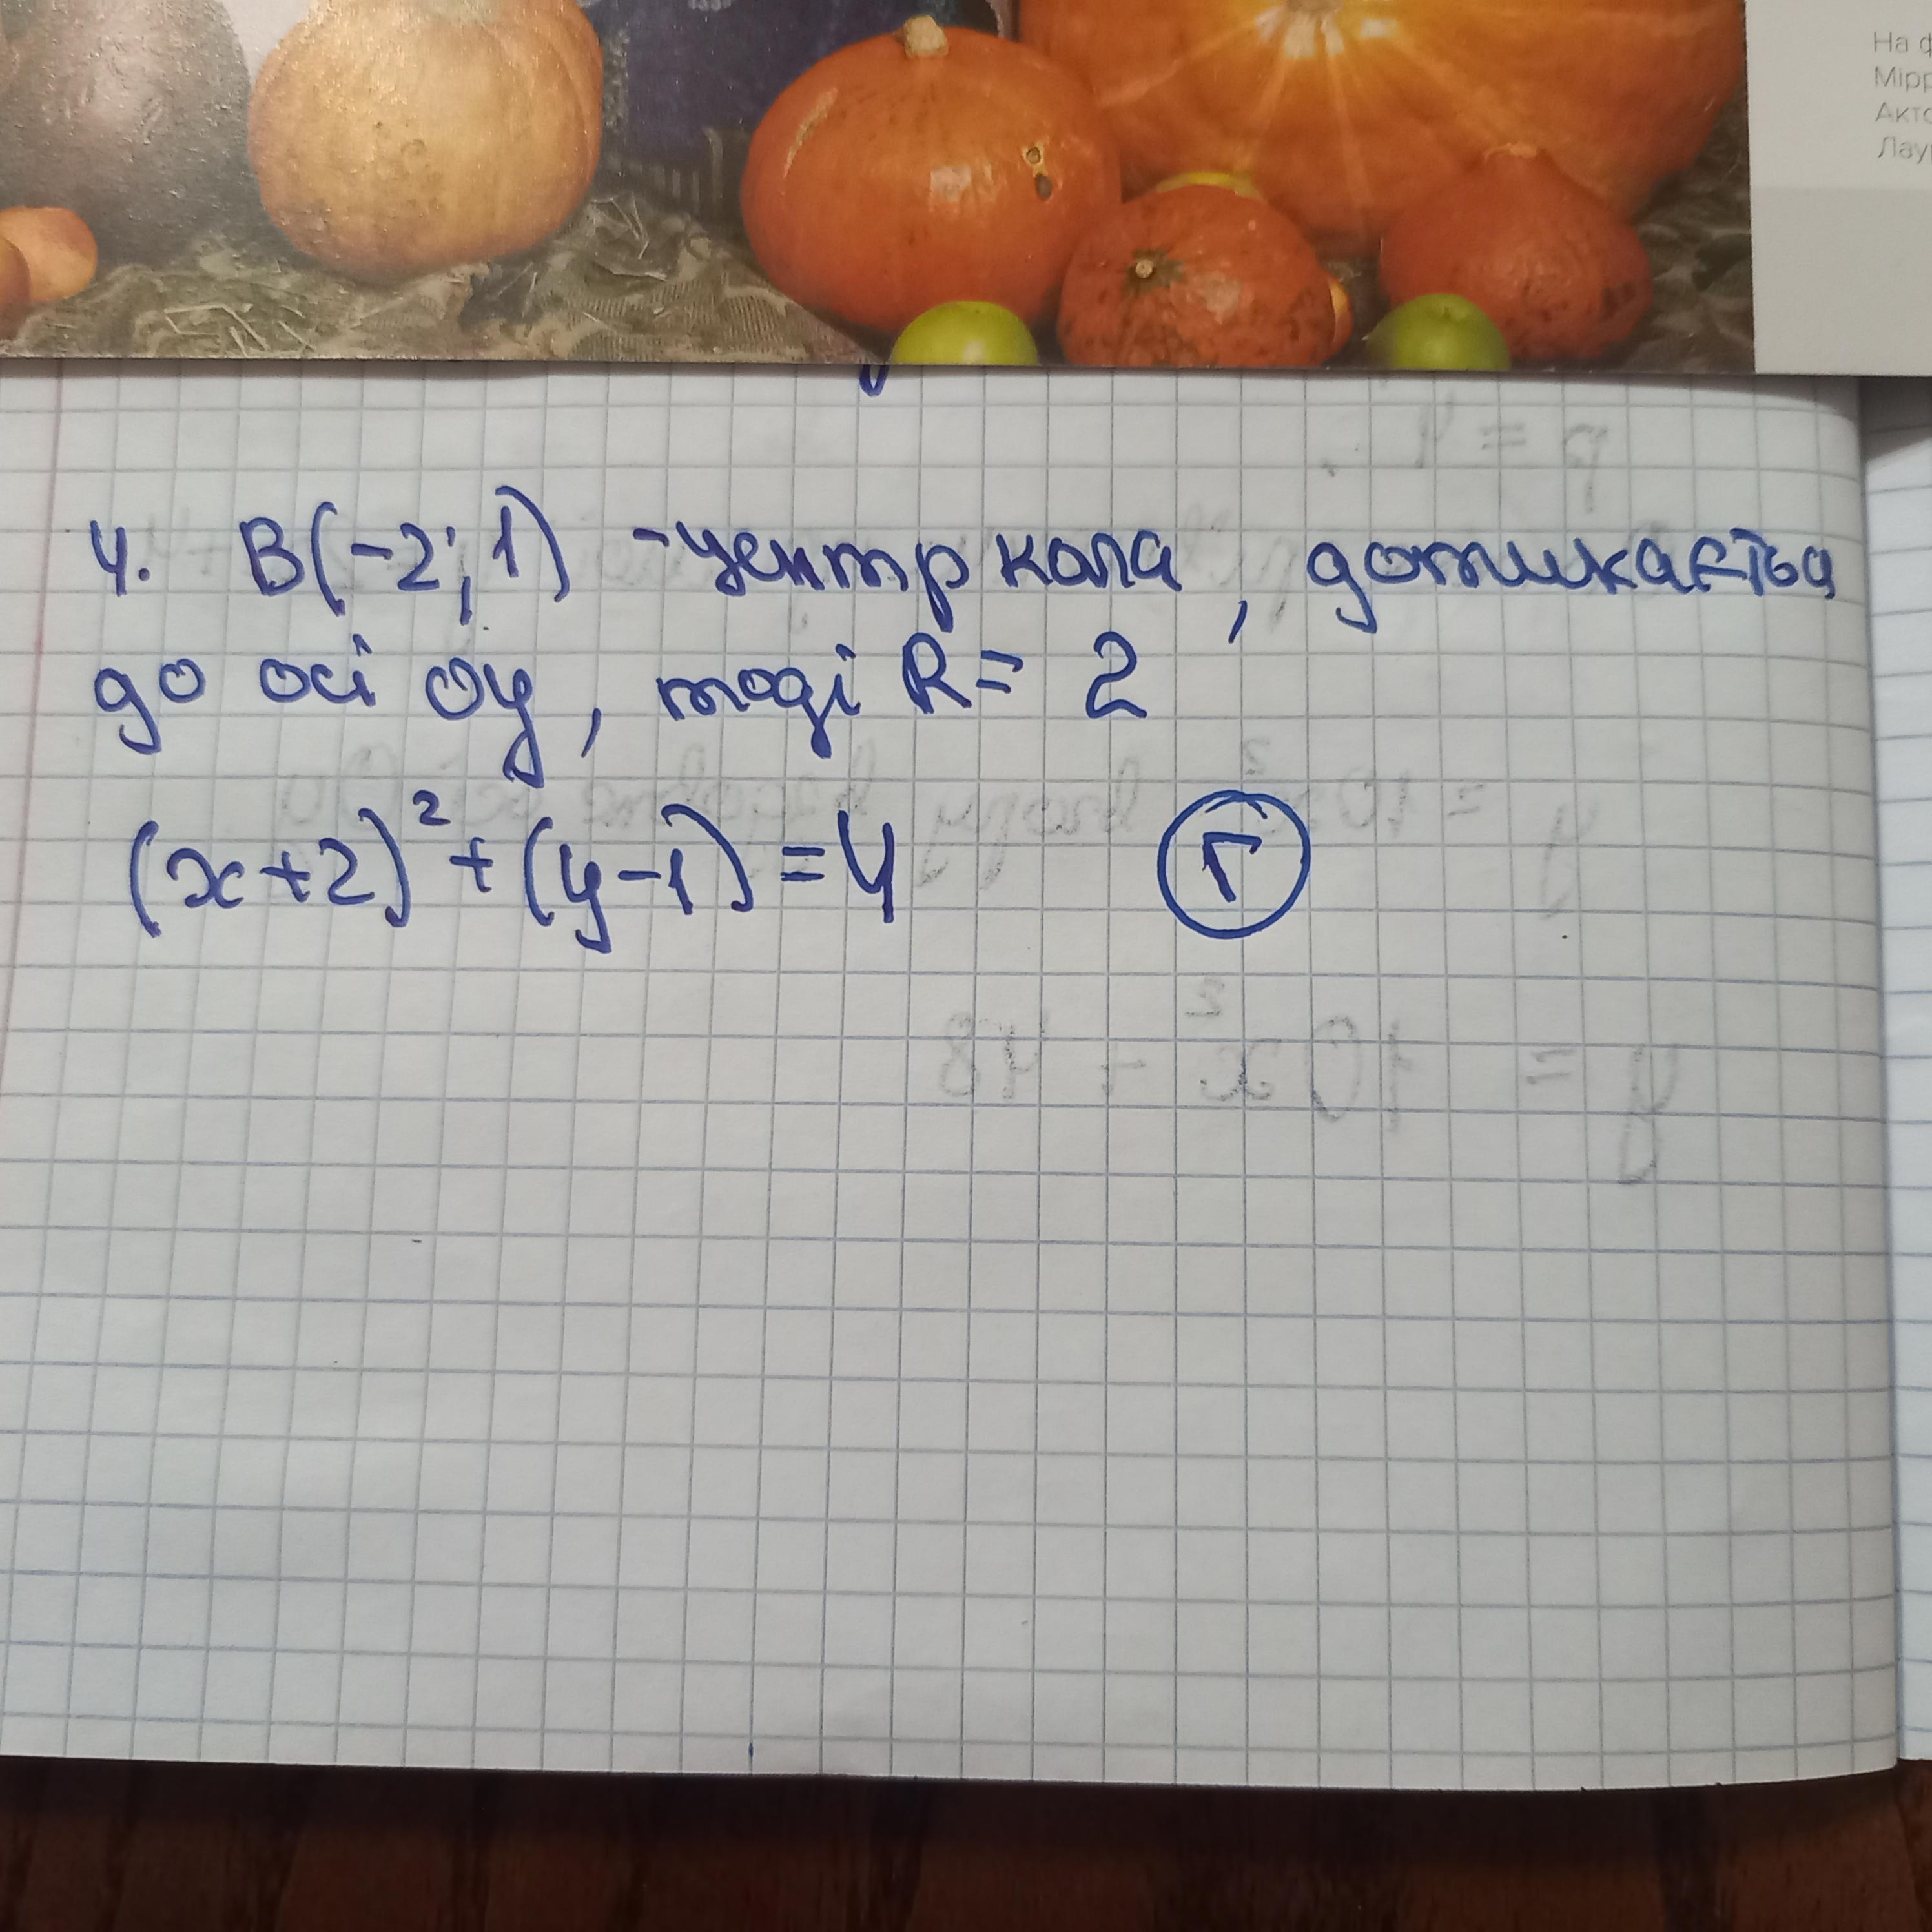 На ф
Мірр
Акто
Лаур
4. В(-2; 1) - центр кола, дотикається
до осі оу, тоді R = 2
(x+2)² + (y-1) = 4 Г